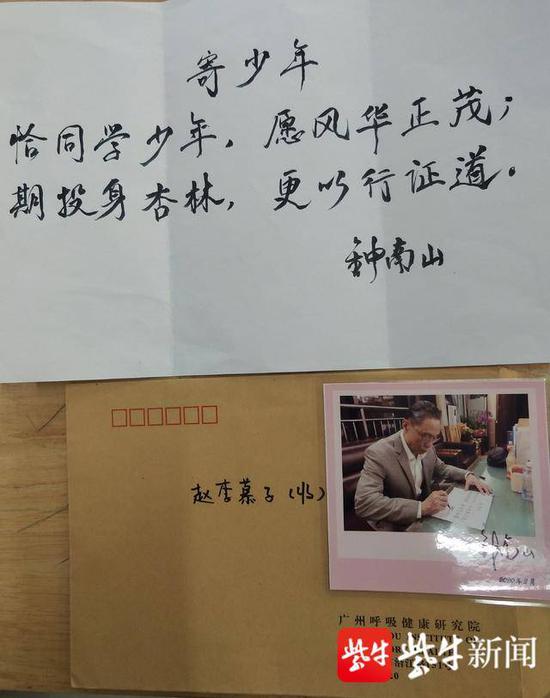 寄少年
恰同学少年，愿风华正茂；
期投身杏林，更以行证道。
钟南山
赵李慕子（收）
钟南山
2020年2月
广州呼吸健康研究院
紫牛新闻